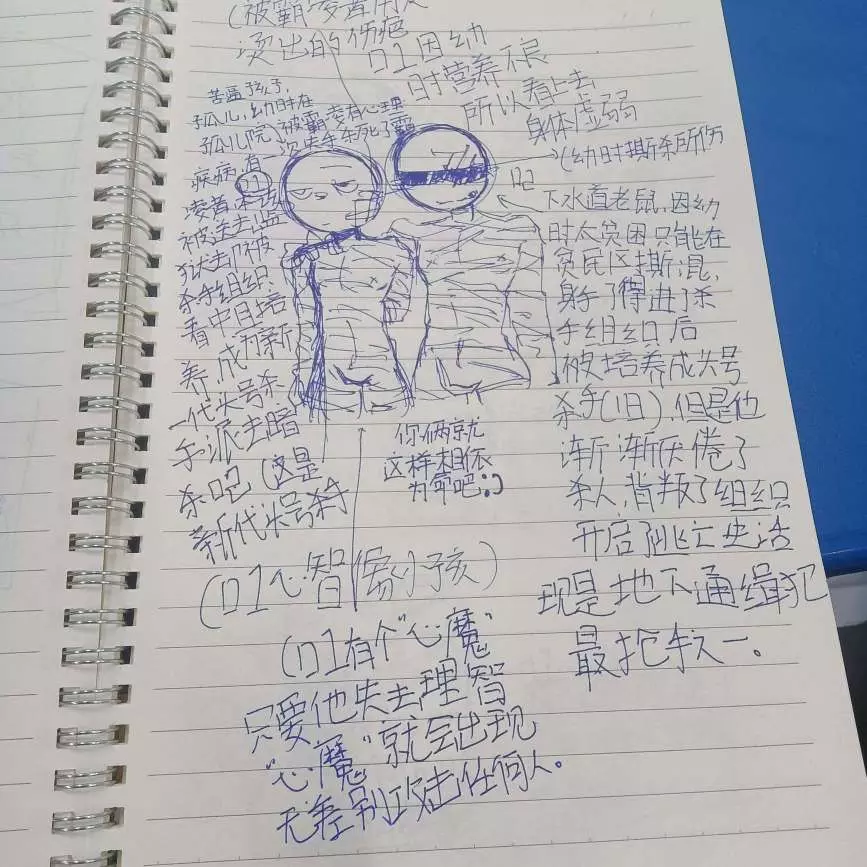 (被霸凌者用
烫出的伤疤
口1因幼
时营养不良
所以看上去
身体虚弱
苦逼孩子,
孤儿,幼时在
孤儿院被霸凌有心理
疾病,有一次失手杀死了霸
凌者,本该
被送去监
狱却被
杀手组织
看中且培
养,成为新
一代头号杀
手派去暗
杀口2(这是
新代头号杀手
(口1心智像小孩)
(口1有个"心魔"
只要他失去理智
"心魔"就会出现
无差别攻击任何人。
你俩就
这样相依
为命吧:)
(幼时撕杀所伤
口2
下水道老鼠,因幼
时太贫困只能在
贫民区撕混,
身手了得进了杀
手组织后
被培养成头号
杀手(旧),但是他
渐渐厌倦了
杀人背叛了组织
开启了逃亡生活
现是地下通缉犯
最抢手之一。